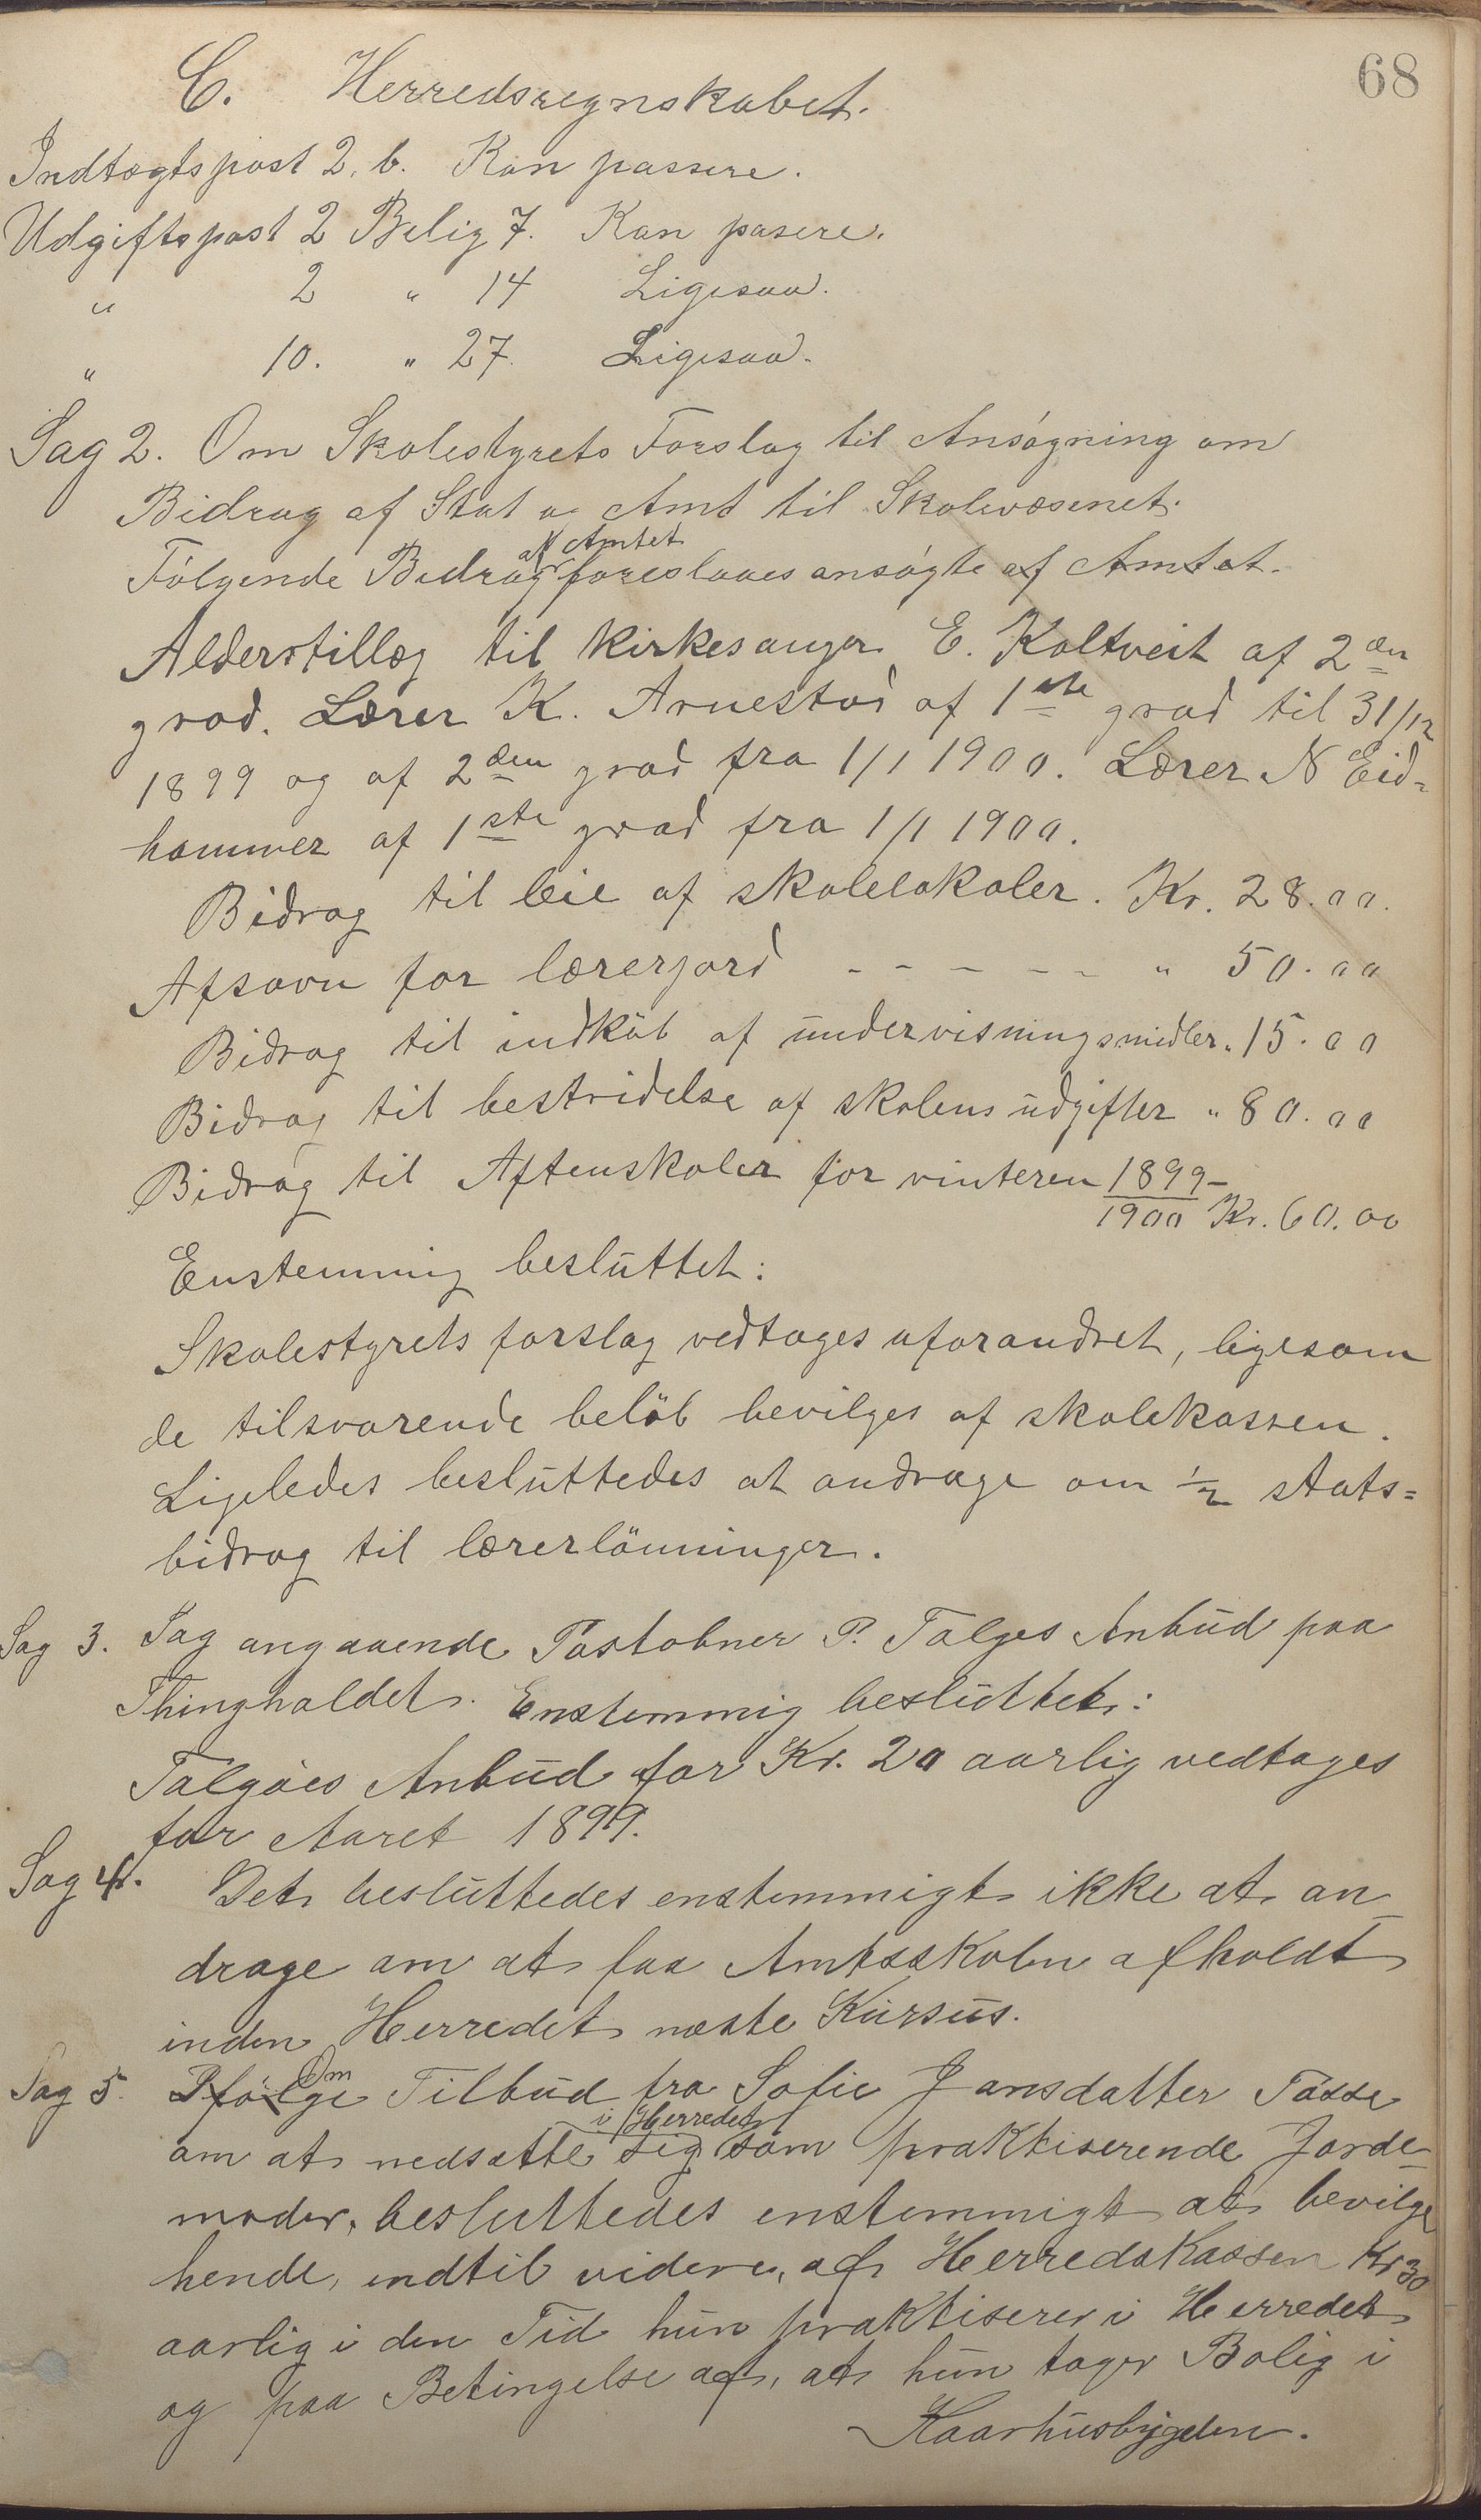 68
C. Herredsregnskabet.
Indtægtspost 2, b. Kan passere.
Udgiftspost 2 Belig 7. Kan pasere.
" 2 " 14 Ligesaa.
" 10. " 27. Ligesaa.
Sag 2. Om Skolestyrets Forslag til Ansøgning om
Bidrag af Stat og Amt til Skolevæsenet.
af Amtet
Følgende Bidrag foreslaaes ansøgte af Amtet.
Alderstillæg til Kirkesanger E. Koltveit af 2den
grad. Lærer K. Arnestad af 1ste grad til 31/12
1899 og af 2den grad fra 1/1 1900. Lærer N Eid=
hammer af 1ste grad fra 1/1 1900.
Bidrag til leie af skolelokaler. Kr. 28.00.
Afsavn for lærerjord - - - - - " 50.00
Bidrag til indköb af undervisningsmidler " 15.00
Bidrag til bestridelse af skolens udgifter " 80.00
Bidrag til Aftenskoler for vinteren 1899-
1900 Kr. 60.00
Enstemmig besluttet:
Skolestyrets forslag vedtages uforandret, ligesom
de tilsvarende belöb bevilges af skolekassen.
Ligeledes besluttedes at andrage om 1/2 stats=
bidrag til lærerlönninger.
Sag 3. Sag angaaende Postobner P. Talges Anbud paa
Thingholdet. Enstemmig besluttet:
Talgøes Anbud for Kr. 20 aarlig vedtages
for Aaret 1899.
Sag 4. Det besluttedes enstemmigt ikke at an-
drage om at faa Amtsskolen afholdt
inden Herredet næste Kursus.
Om
Sag 5. Ifølge Tilbud fra Sofie Jansdatter Tøsse
i Herredet
om at nedsætte sig som praktiserende Jorde-
moder, besluttedes enstemmigt at bevilge
hende, indtil videre, af Herredskassen Kr 30
aarlig i den Tid hun praktiserer i Herredet
og paa Betingelse af, at hun tager Bolig i
Kaarhusbygden.